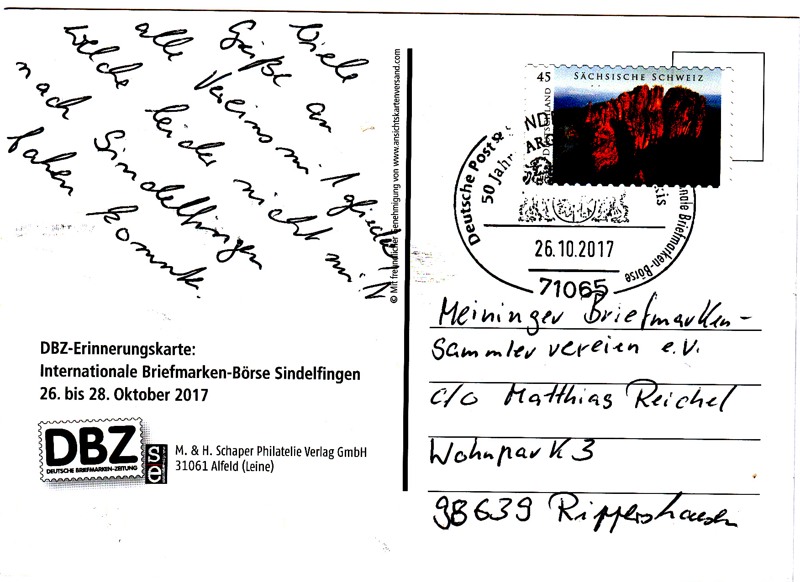 Viele
Grüße an
alle Vereinsmitglieder
welche leider nicht mit
nach Sindelfingen
fahren konnte.
© Mit freundlicher Genehmigung von www.ansichtskartenversand.com
45
SÄCHSISCHE SCHWEIZ
DEUTSCHLAND
Deutsche Post
50 Jahr
ARG
nale Briefmarken-Börse
26.10.2017
71065
Meininger Briefmarken-
Sammlervereien e.V.
c/o Matthias Reichel
Wohnpark 3
98639 Rippershausen
DBZ-Erinnerungskarte:
Internationale Briefmarken-Börse Sindelfingen
26. bis 28. Oktober 2017
DBZ
DEUTSCHE BRIEFMARKEN-ZEITUNG
se
M. & H. Schaper Philatelie Verlag GmbH
31061 Alfeld (Leine)